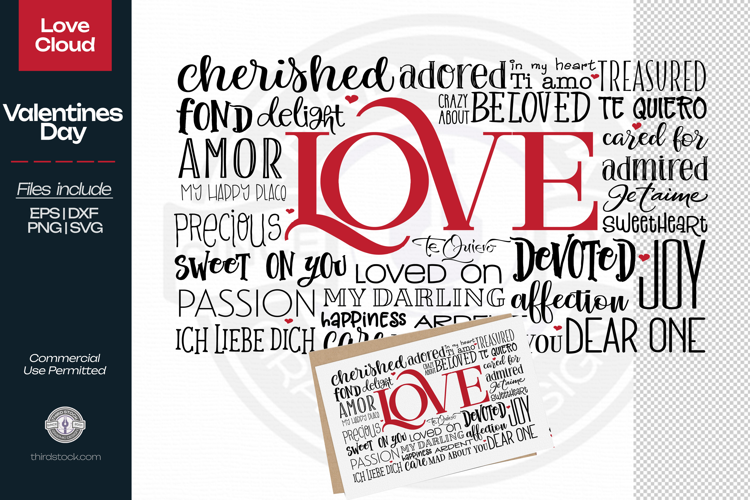 Love
Cloud
Valentines
Day
Files include
EPS|DXF
PNG|SVG
Commercial
Use Permitted
thirdstock.com
cherished adored in my heart Ti amo TREASURED
FOND delight CRAZY ABOUT BELOVED TE QUIERO
LOVE
cared for
AMOR
admired
MY HAPPY PLACO
Je t'aime
PRECIOUS
sweetheart
Te Quiero
SWEET ON YOU LOVED ON DEVOTED JOY
PASSION MY DARLING affection
happiness ARDENT
ICH LIEBE DICH care YOU DEAR ONE
cherished adored in my heart Ti amo TREASURED
FOND delight CRAZY ABOUT BELOVED TE QUIERO
LOVE
cared for
AMOR
admired
MY HAPPY PLACO
Je t'aime
PRECIOUS
sweetheart
Te Quiero
SWEET ON YOU LOVED ON DEVOTED JOY
PASSION MY DARLING affection
happiness ARDENT
ICH LIEBE DICH care MAD ABOUT YOU DEAR ONE